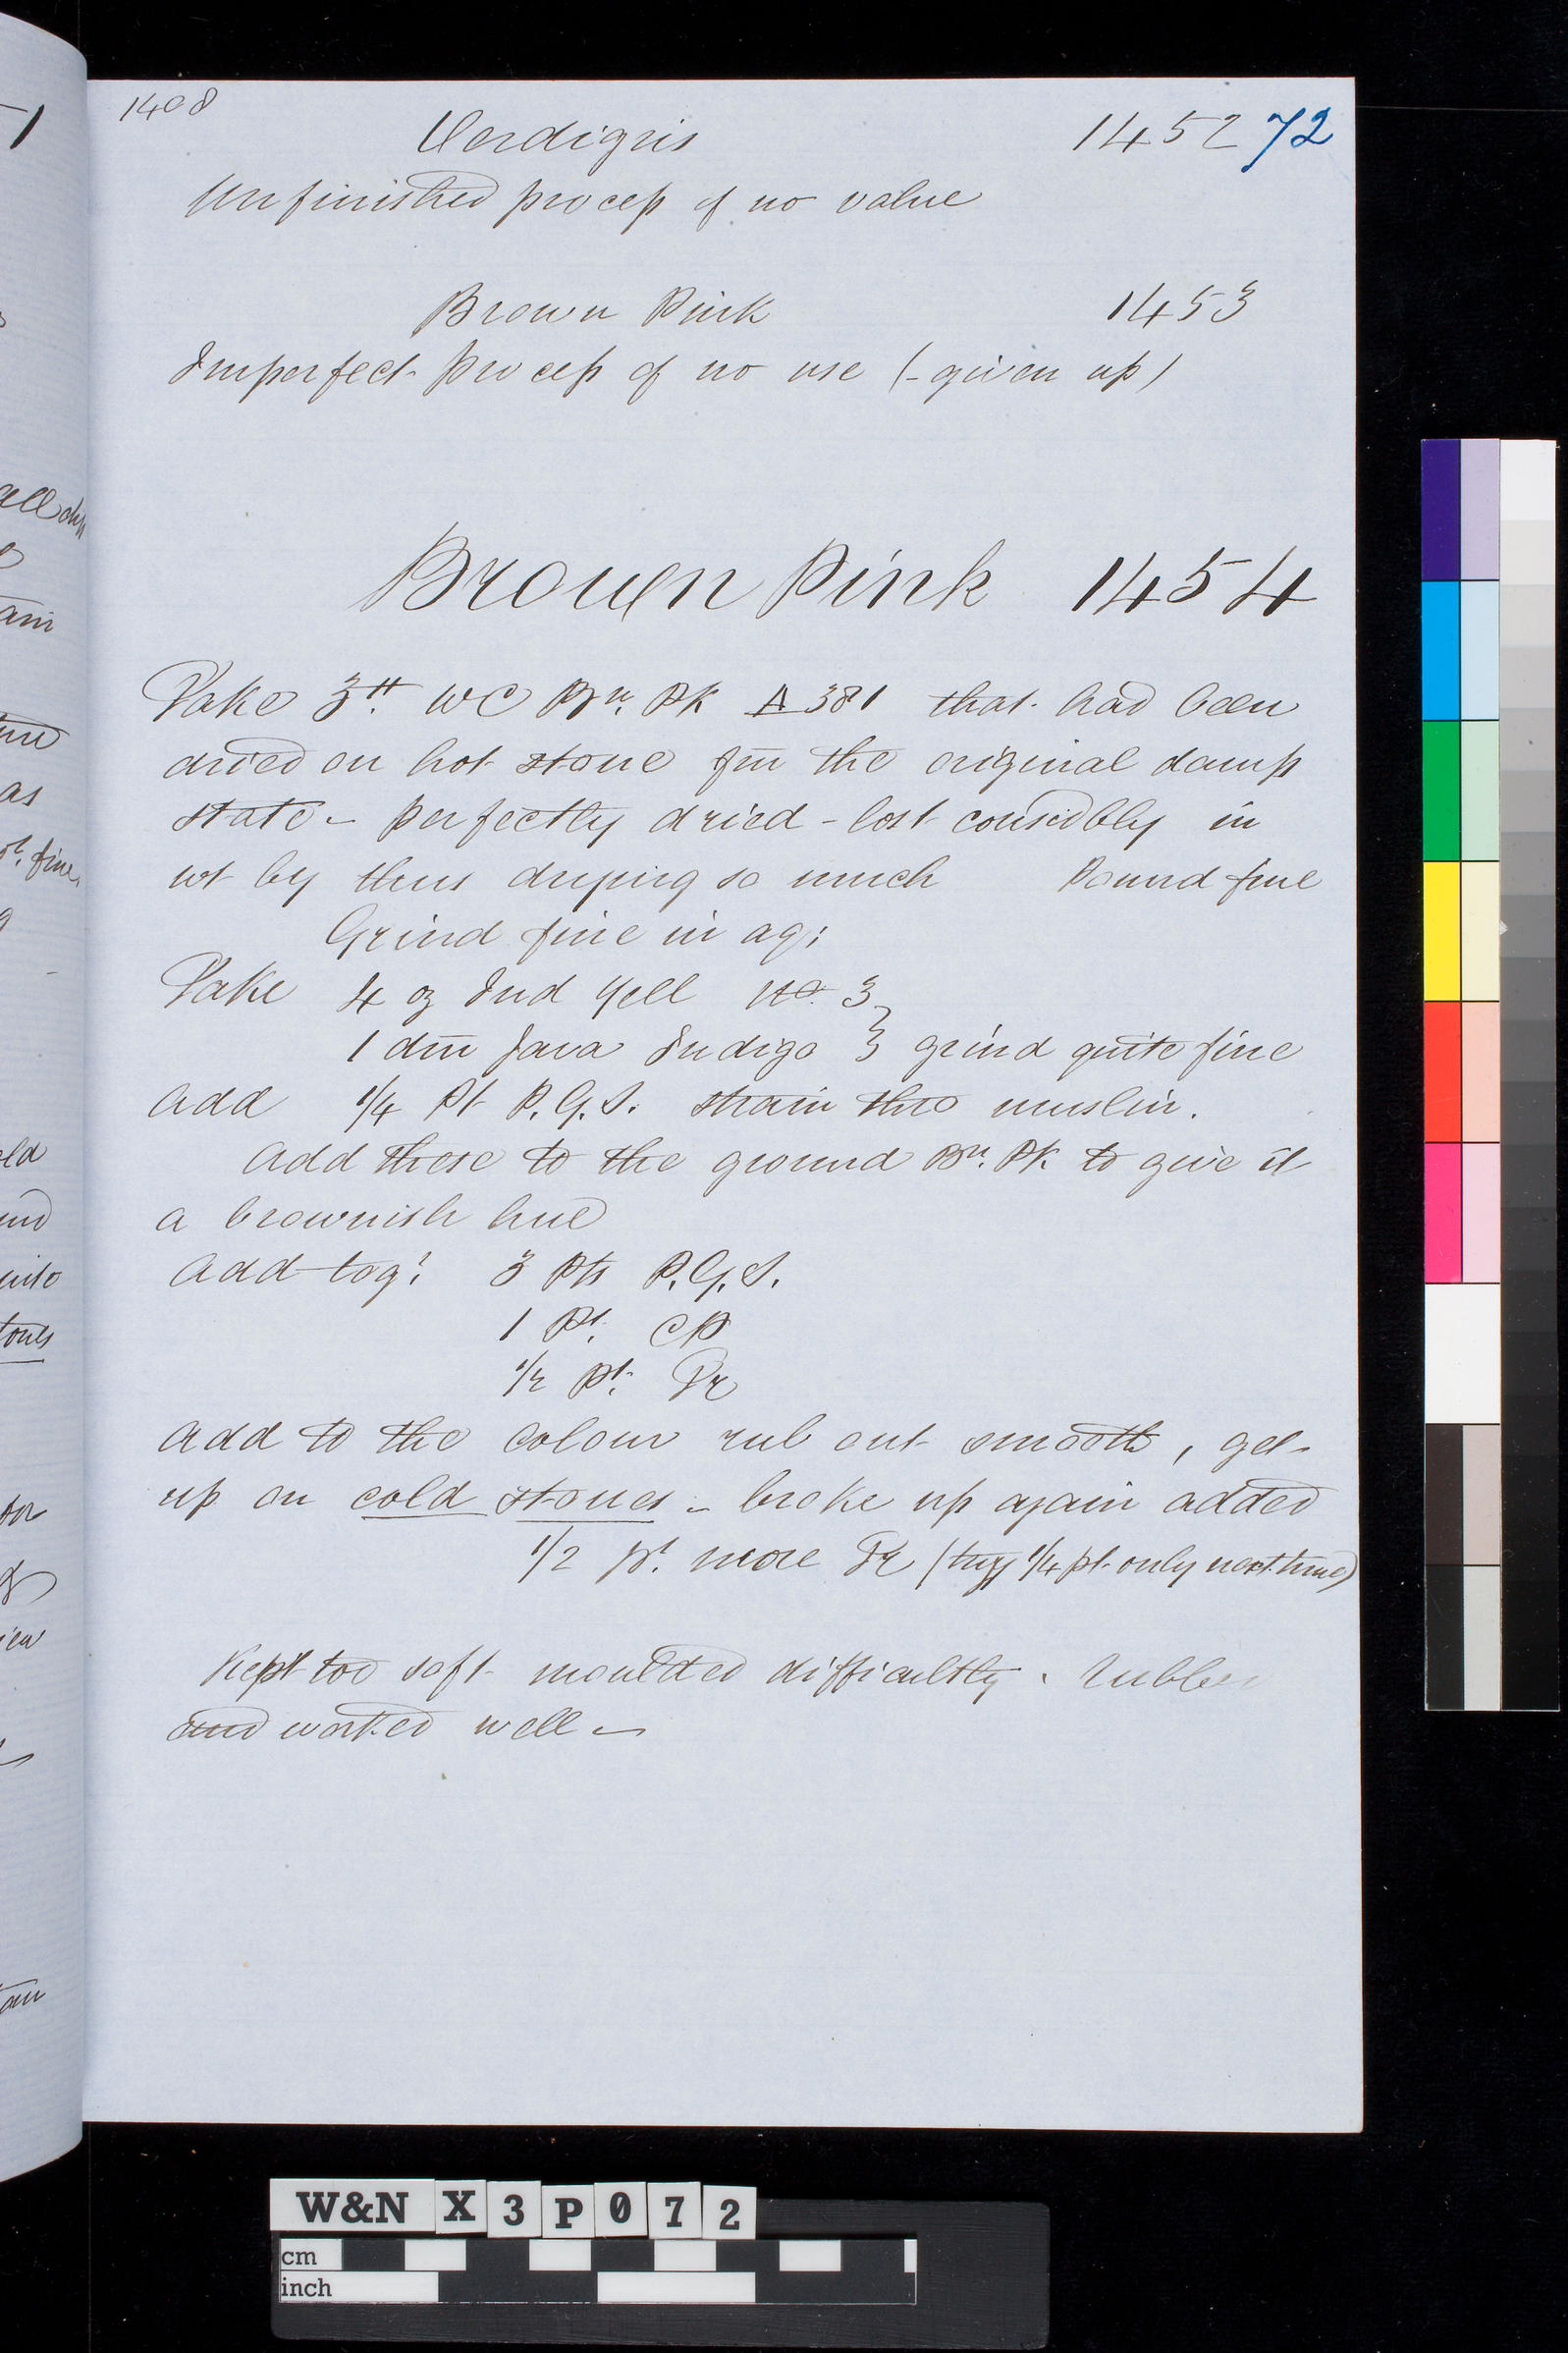 1408
Verdigris 1452 72
Unfinished process of no value
Brown Pink 1453
Imperfect process of no use (-given up)
Brown Pink 1454
Take 3 lb. WC Bn. Pk A 381 that had been
dried on hot stone fm the original damp
state - perfectly dried - lost considbly in
wt by thus drying so much Pound fine
Grind fine in aq:
Take 4 oz Ind Yell No. 3
1 dm Java Indigo } grind quite fine
Add 1/4 Pt P.G.S. strain thro muslin.
Add these to the ground Bn. Pk to give it
a brownish hue
Add tog: 3 Pts P.G.S.
1 Pt. CP
1/2 pt. Tr
Add to the colour rub out smooth, get
up on cold stones - broke up again added
1/2 pt. more Tr (try 1/4 pt. only next time)
Kept too soft moulded difficultly. Rubbed
and worked well -
W&N X 3 P 0 7 2
cm
inch